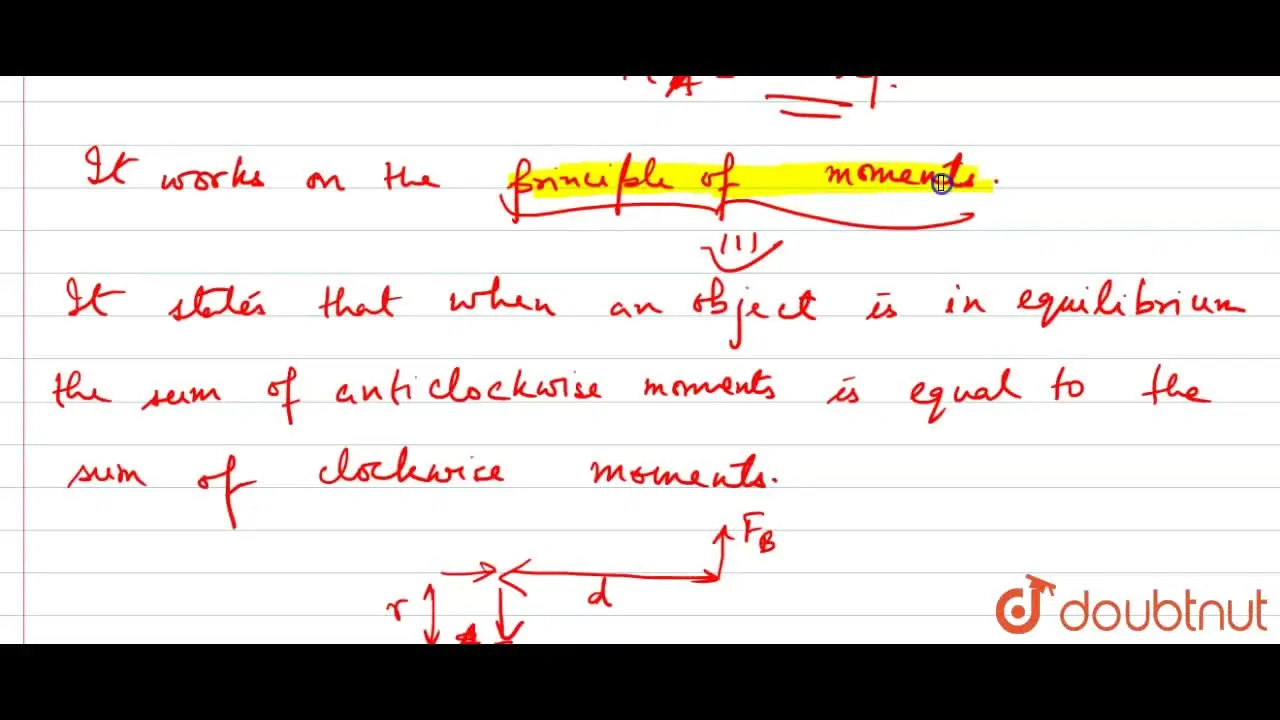 It works on the principle of moments.
It states that when an object is in equilibrium
the sum of anticlockwise moments is equal to the
sum of clockwise moments.
F_B
d
r
doubtnut